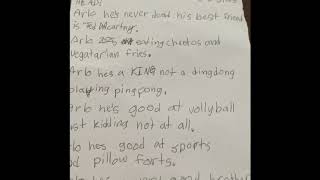 HEAD!
Arlo he's never dead his best friend
is Ted McCartney.
Arlo eating cheetos and
vegatarian fries.
Arlo hes a KING not a dingdong
playing pingpong.
Arlo he's good at vollyball
just kidding not at all.
Arlo hes good at sports
and pillow forts.